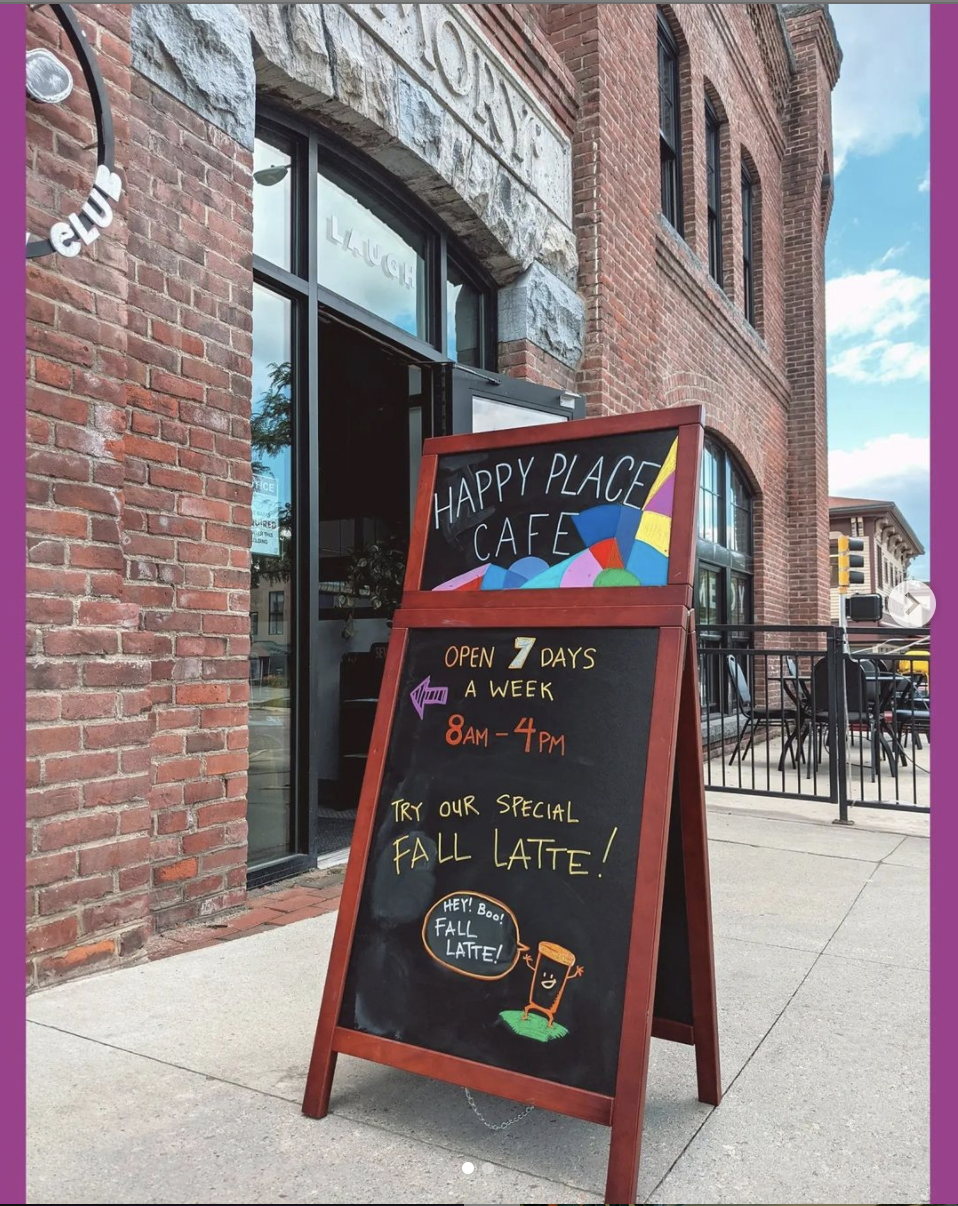 MORY
CLUB
LAUGH
HAPPY PLACE
CAFE
OPEN 7 DAYS
A WEEK
8AM - 4PM
TRY OUR SPECIAL
FALL LATTE!
HEY! BOO!
FALL
LATTE!